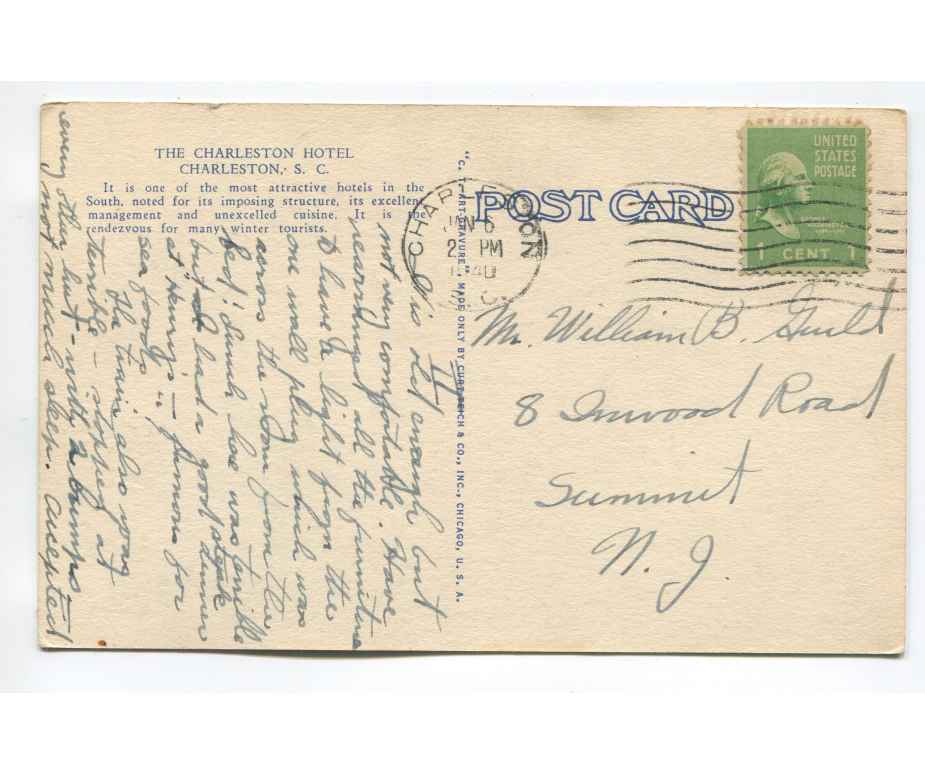 THE CHARLESTON HOTEL
CHARLESTON, S. C.
It is one of the most attractive hotels in the
South, noted for its imposing structure, its excellent
management and unexcelled cuisine. It is the
rendezvous for many winter tourists.
"C. T. ART-GRAVURE" MADE ONLY BY CURT TEICH & CO., INC., CHICAGO, U. S. A.
POST CARD
CHARLESTON
JAN 6
2 PM
1940
S. C.
UNITED
STATES
POSTAGE
1 CENT 1
Mr. William B. Guild
8 Inwood Road
Summit
N. J.
is old enough but
not very comfortable. Have
rearranged all the furniture
to have a light from the
one wall plug which was
across the room from the
bed! Lunch here was terrible
but had a good steak dinner
at Henry's — famous for
sea foods.
The train also was
terrible — stopped at
every other hut - with bumps -
not much sleep. Accepted